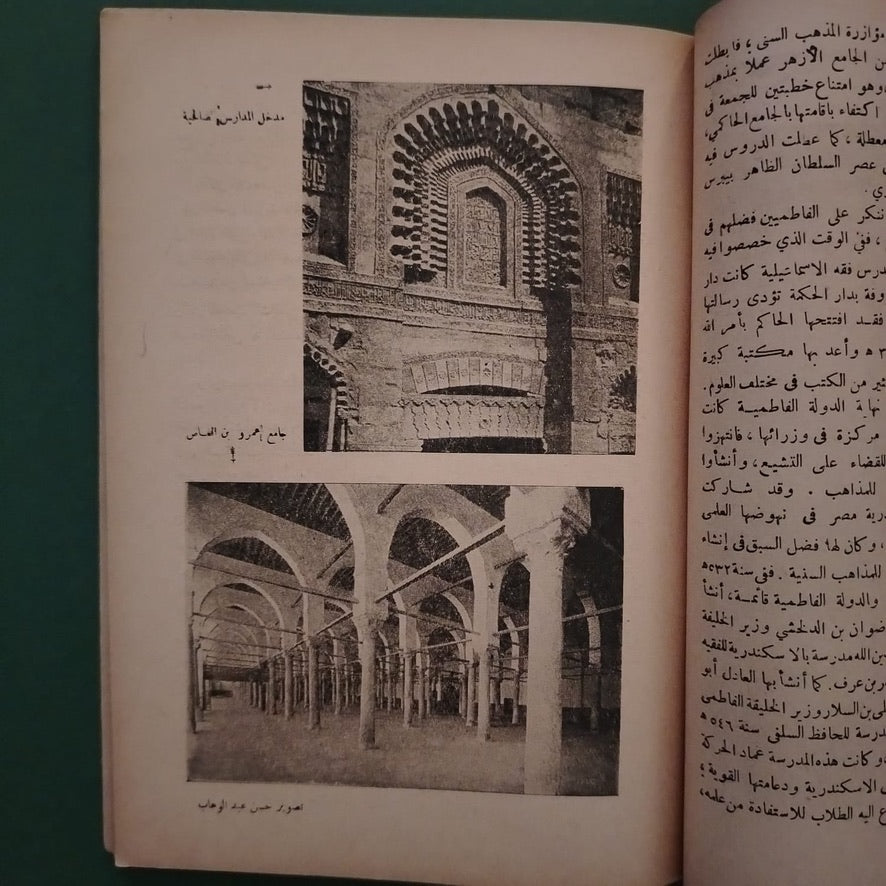 مدخل المدارس الصالحية
جامع عمرو بن العاص
تصوير حسن عبد الوهاب
مؤازرة المذهب السنى ، فابطلت
من الجامع الأزهر عملا بمذهب
وهو امتناع خطبتين للجمعة فى
اكتفاء باقامتها بالجامع الحاكمى ،
معطلة ، كما عطلت الدروس فيه
عصر السلطان الظاهر بيبرس
ننكر على الفاطميين فضلهم فى
، ففى الوقت الذي خصصوا فيه
درس فقه الاسماعيلية كانت دار
وفة بدار الحكمة تؤدى رسالتها
فقد افتتحها الحاكم بأمر الله
ه وأعد بها مكتبة كبيرة
ثير من الكتب فى مختلف العلوم .
نهاية الدولة الفاطمية كانت
مركزة فى وزرائها ، فانتهزوا
للقضاء على التشيع ، وأنشأوا
للمذاهب . وقد شاركت
درية مصر فى نهوضها العلمى
، وكان لها فضل السبق فى إنشاء
للمذاهب السنية . ففى سنة ٥٣٢ ه
والدولة الفاطمية قائمة ، أنشأ
ضوان بن الدلخشي وزير الخليفة
بن الله مدرسة بالاسكندرية للفقيه
بن عرف . كما أنشأ بها العادل أبو
لى بن السلار وزير الخليفة الفاطمى
درسة للحافظ السلفى سنة ٥٤٦ ه
، وكانت هذه المدرسة عماد الحركة
الاسكندرية ودعامتها القوية ؛
ع اليه الطلاب للاستفادة من علمه ،